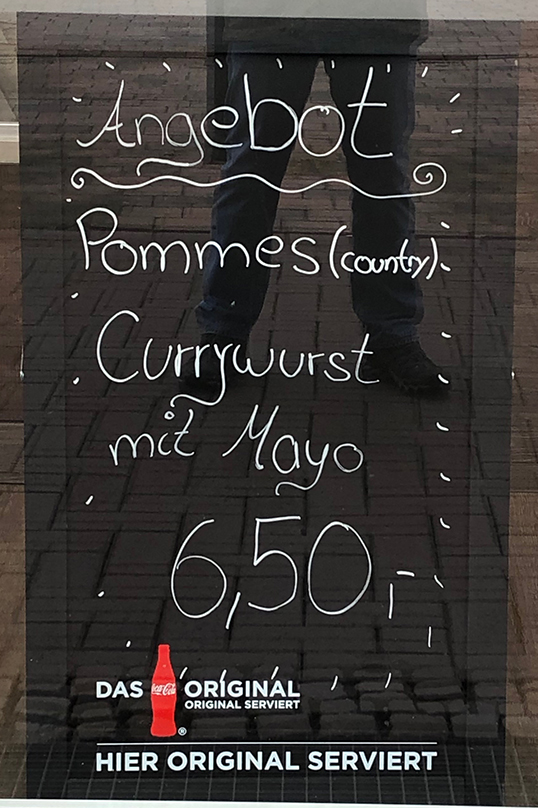 Angebot
Pommes (country)
Currywurst
mit Mayo
6,50,-
DAS Coca-Cola ORIGINAL
ORIGINAL SERVIERT
®
HIER ORIGINAL SERVIERT